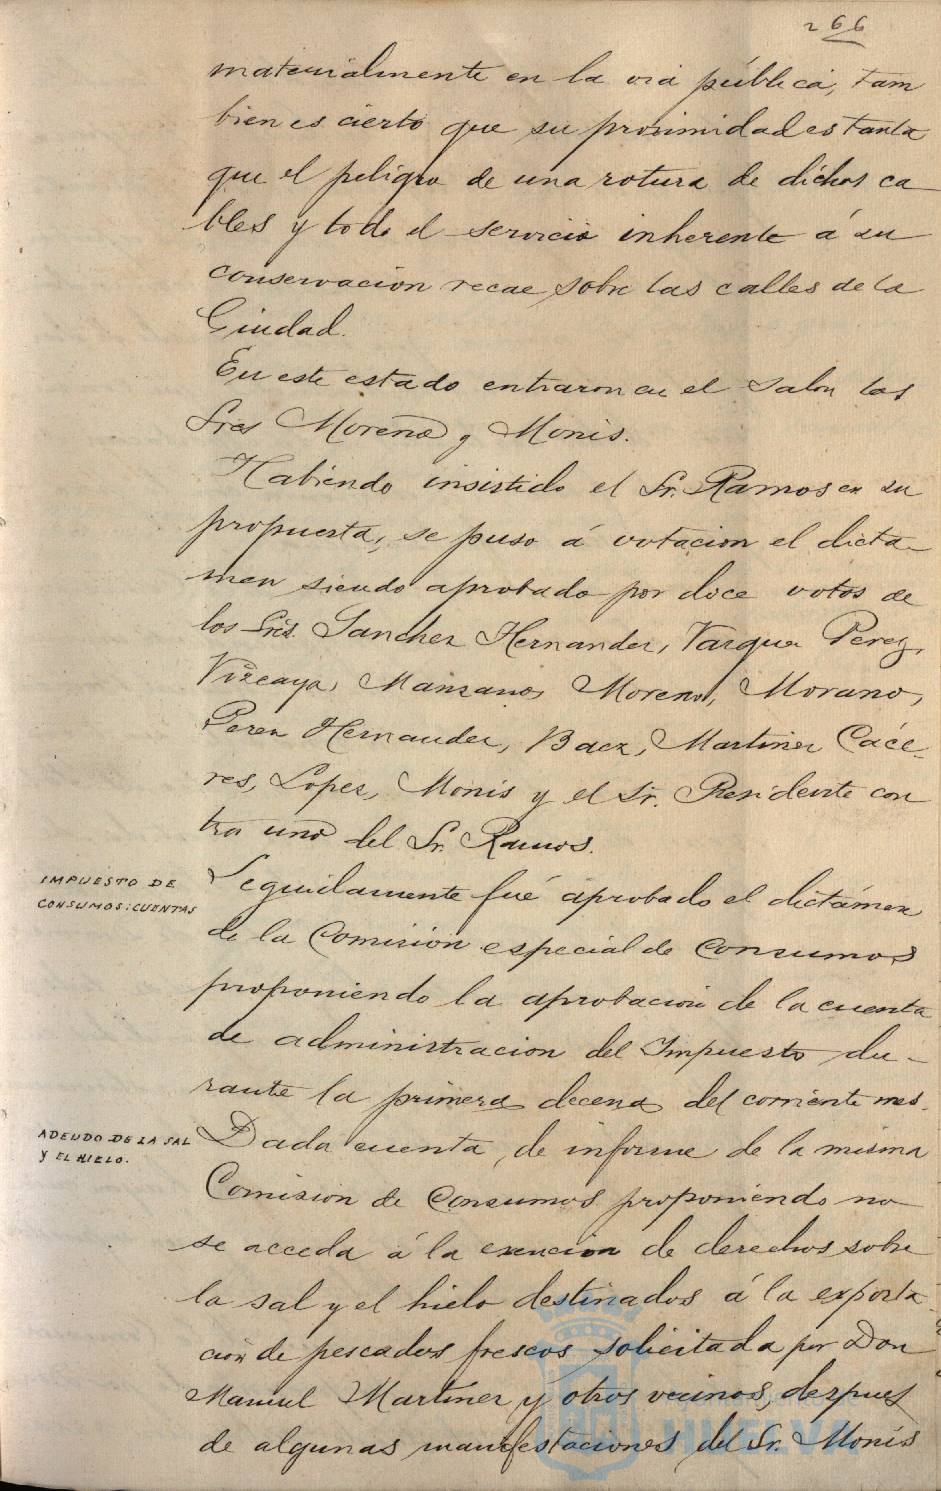 266
materialmente en la via pública, tam
bien es cierto que su proximidad es tanta
que el peligro de una rotura de dichos ca
bles y todo el servicio inherente á su
conservacion recae sobre las calles de la
Ciudad.
En este estado entraron en el salon los
Sres Moreno y Monis.
Habiendo insistido el Sr. Ramos en su
propuesta, se puso á votacion el dicta-
men siendo aprobado por doce votos de
los Sres. Sanchez Hernandez, Vazquez Perez,
Vizcaya, Manzano, Moreno, Morano,
Perez Hernandez, Baez, Martinez Cáce-
res, Lopez, Monis y el Sr. Presidente con
tra uno del Sr. Ramos.
IMPUESTO DE
CONSUMOS: CUENTAS
Seguidamente fué aprobado el dictámen
de la Comision especial de Consumos
proponiendo la aprobacion de la cuenta
de administracion del Impuesto du-
rante la primera decena del corriente mes.
ADEUDO DE LA SAL
Y EL HIELO.
Dada cuenta, de informe de la misma
Comision de Consumos proponiendo no
se acceda á la exencion de derechos sobre
la sal y el hielo destinados á la exporta
cion de pescados frescos solicitada por Don
Manuel Martinez y otros vecinos, despues
de algunas manifestaciones del Sr. Monis
HUELVA